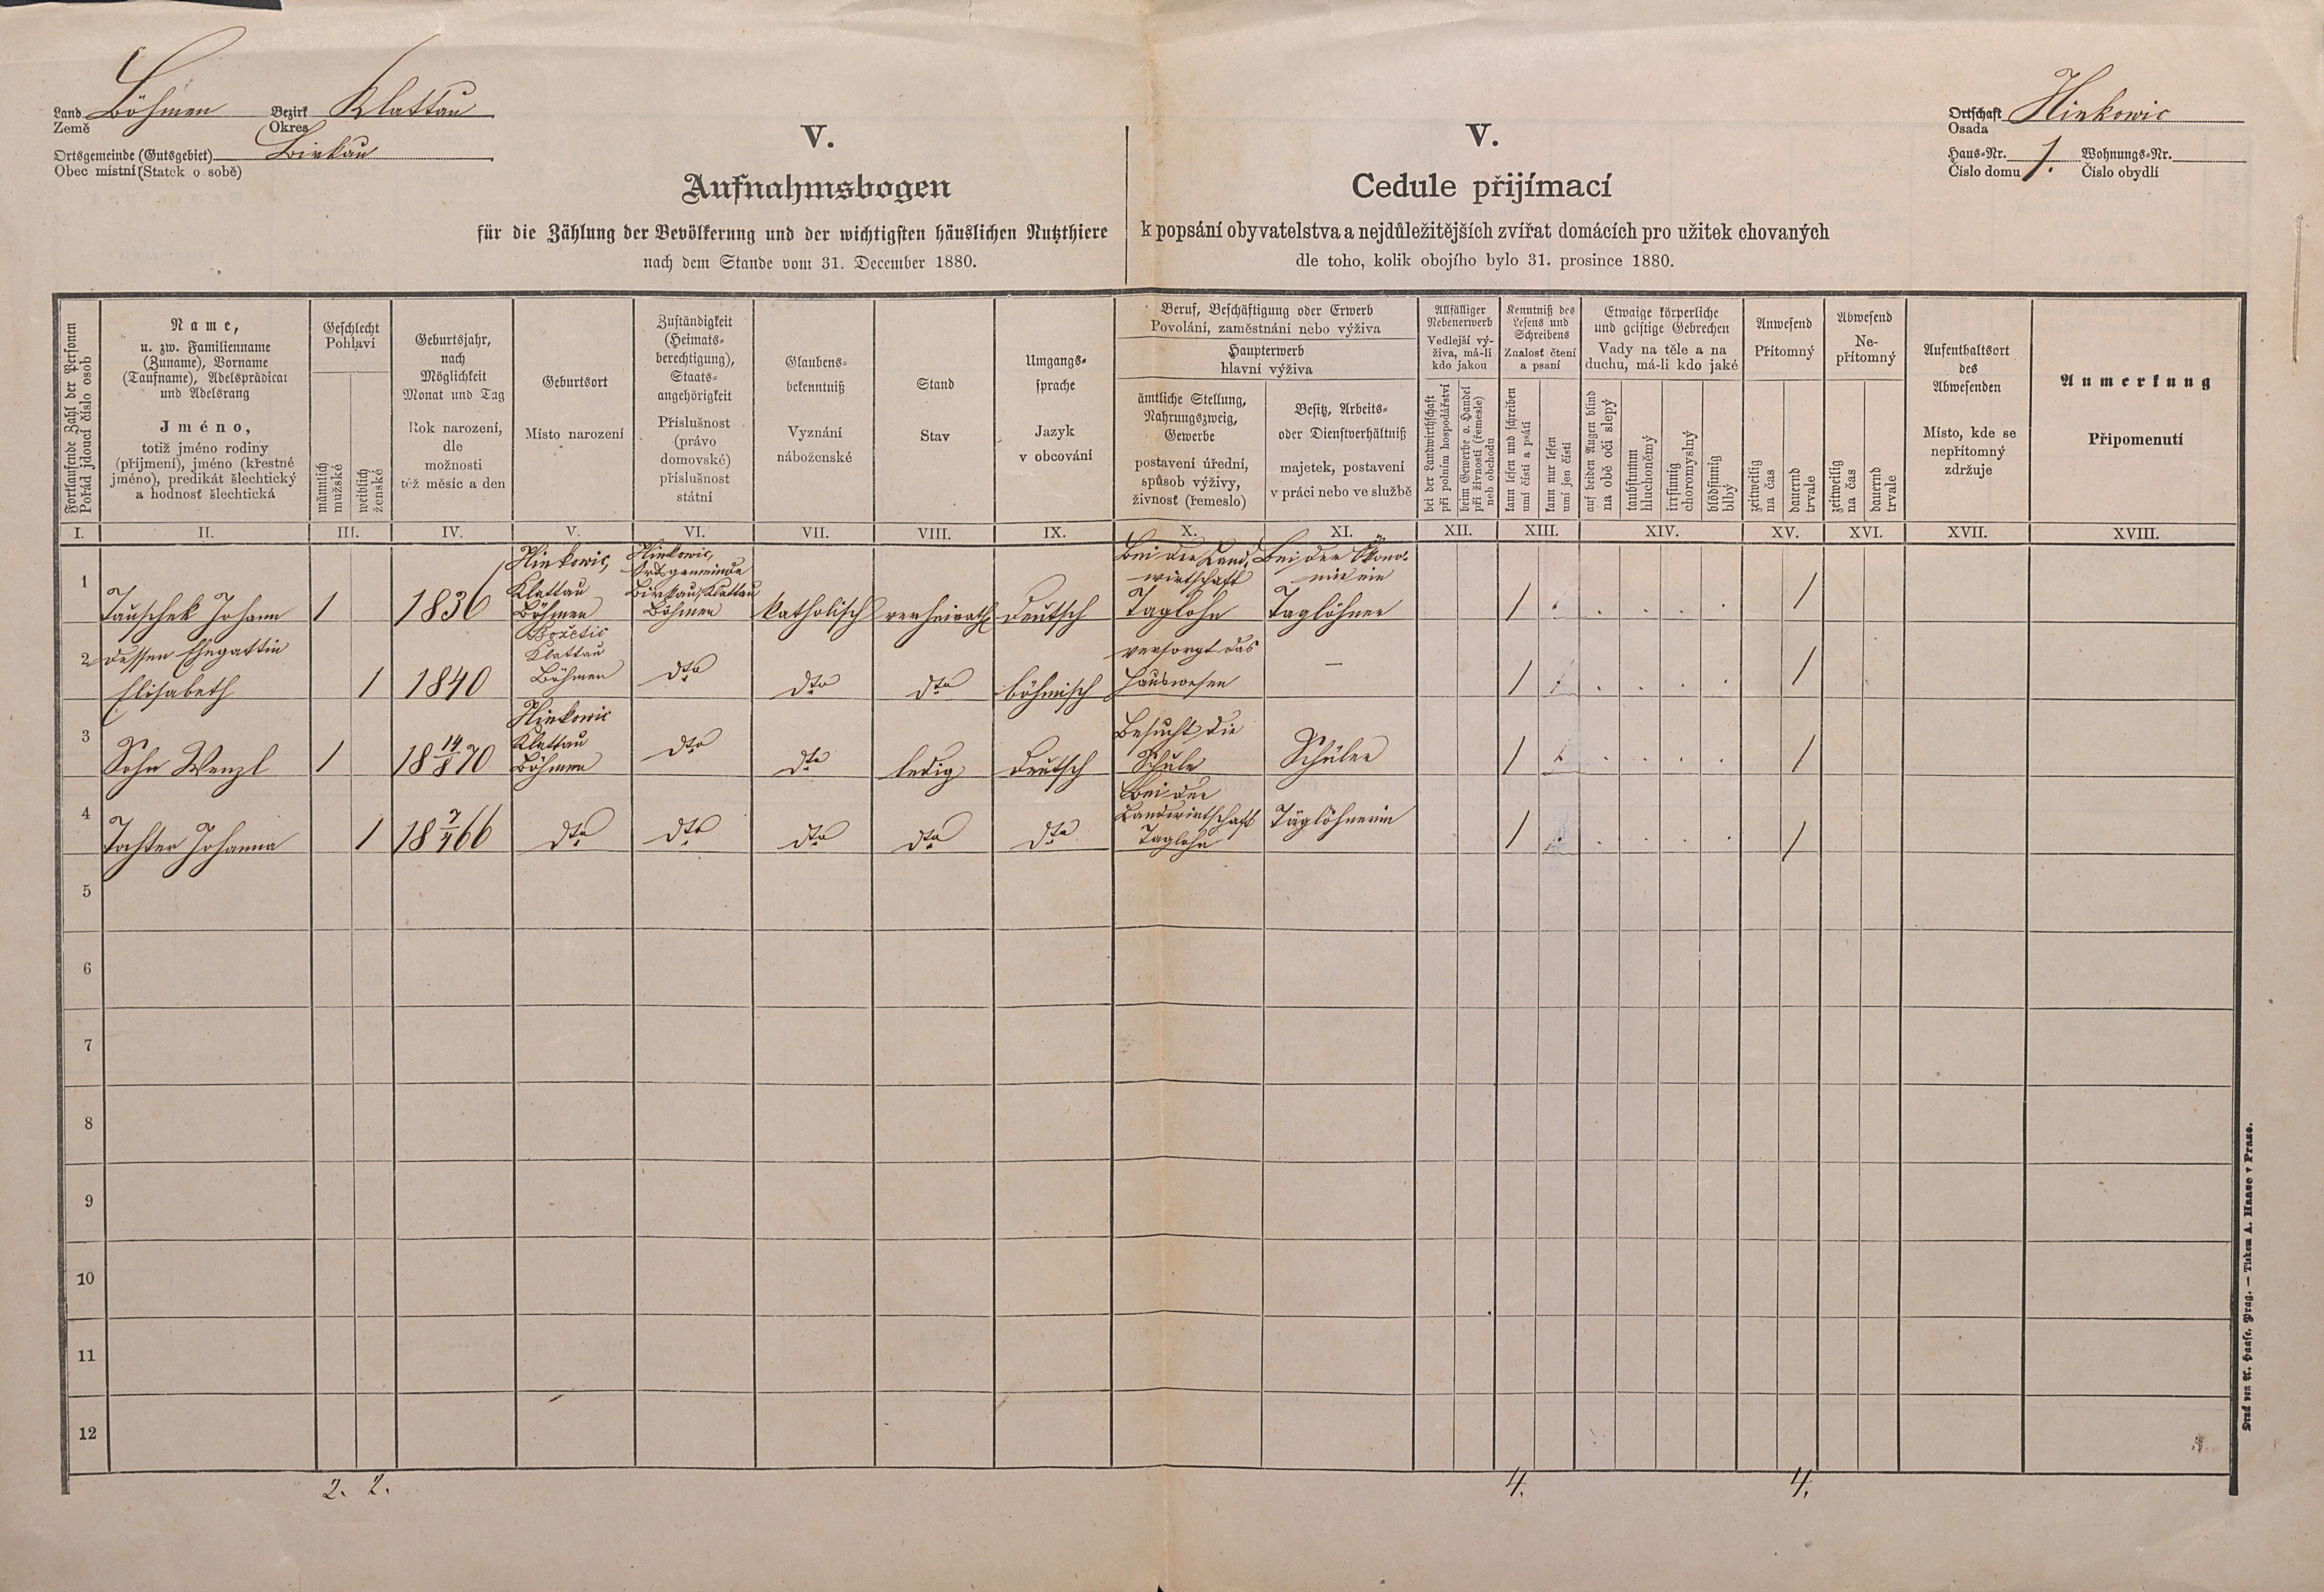 Land Böhmen Bezirk Klattau
Země Okres
Ortsgemeinde (Gutsgebiet) Birkau
Obec místní (Statek o sobě)
Ortschaft Hinkowic
Osada
Haus-Nr. 1. Wohnungs-Nr.
Číslo domu Číslo obydlí
V.
Aufnahmsbogen
für die Zählung der Bevölkerung und der wichtigsten häuslichen Nutzthiere
nach dem Stande vom 31. December 1880.
V.
Cedule přijímací
k popsání obyvatelstva a nejdůležitějších zvířat domácích pro užitek chovaných
dle toho, kolik obojího bylo 31. prosince 1880.
Fortlaufende Zahl der Personen
Pořád jdoucí číslo osob
Name,
u. zw. Familienname
(Zuname), Vorname
(Taufname), Adelsprädicat
und Adelsrang
Jméno,
totiž jméno rodiny
(příjmení), jméno (křestné
jméno), predikát šlechtický
a hodnosť šlechtická
Geschlecht
Pohlaví
männlich
mužské
weiblich
ženské
Geburtsjahr,
nach
Möglichkeit
Monat und Tag
Rok narození,
dle
možnosti
též měsíc a den
Geburtsort
Místo narození
Zuständigkeit
(Heimats-
berechtigung),
Staats-
angehörigkeit
Příslušnost
(právo
domovské)
příslušnost
státní
Glaubens-
bekenntniß
Vyznání
náboženské
Stand
Stav
Umgangs-
sprache
Jazyk
v obcování
Beruf, Beschäftigung oder Erwerb
Povolání, zaměstnání nebo výživa
Haupterwerb
hlavní výživa
ämtliche Stellung,
Nahrungszweig,
Gewerbe
postavení úřední,
spůsob výživy,
živnosť (řemeslo)
Besitz, Arbeits-
oder Dienstverhältniß
majetek, postavení
v práci nebo ve službě
Allfälliger
Nebenerwerb
Vedlejší vý-
živa, má-li
kdo jakou
bei der Landwirthschaft
při polním hospodářství
beim Gewerbe o. Handel
při živnosti (řemesle)
neb obchodu
Kenntniß des
Lesens und
Schreibens
Znalosť čtení
a psaní
kann lesen und schreiben
umí čísti a psáti
kann nur lesen
umí jen čísti
Etwaige körperliche
und geistige Gebrechen
Vady na těle a na
duchu, má-li kdo jaké
auf beiden Augen blind
na obě oči slepý
taubstumm
hluchoněmý
irrsinnig
choromyslný
blödsinnig
blbý
Anwesend
Přítomný
zeitweilig
na čas
dauernd
trvale
Abwesend
Ne-
přítomný
zeitweilig
na čas
dauernd
trvale
Aufenthaltsort
des
Abwesenden
Místo, kde se
nepřítomný
zdržuje
Anmerkung
Připomenutí
I. II. III. IV. V. VI. VII. VIII. IX. X. XI. XII. XIII. XIV. XV. XVI. XVII. XVIII.
1
Tauschek Johann
1
1836
Hinkowic,
Klattau
Böhmen
Hinkowic,
Ortsgemeinde
Birkau, Klattau
Böhmen
katholisch
verheirath
deutsch
Bei der Land,
wirtschaft
Taglohn
Bei der Ökono-
mie ein
Taglöhner
1
1
2 dessen Ehegattin
Elisabeth
1
1840
Božetic
Klattau
Böhmen
dto
dto
dto
böhmisch
versorgt das
Hauswesen
—
1
1
3
Sohn Wenzl
1
18 14/8 70
Hinkowic
Klattau
Böhmen
dto
dto
ledig
deutsch
Besucht die
Schule
Schüler
1
1
4
Tochter Johanna
1
18 7/4 66
dto
dto
dto
dto
dto
Bei der
Landwirtschaft
Taglohn
Taglöhnerin
1
1
5
6
7
8
9
10
11
12
2. 2. 4. 4.
Druck von A. Haase, Prag. — Tiskem A. Haase v Praze.